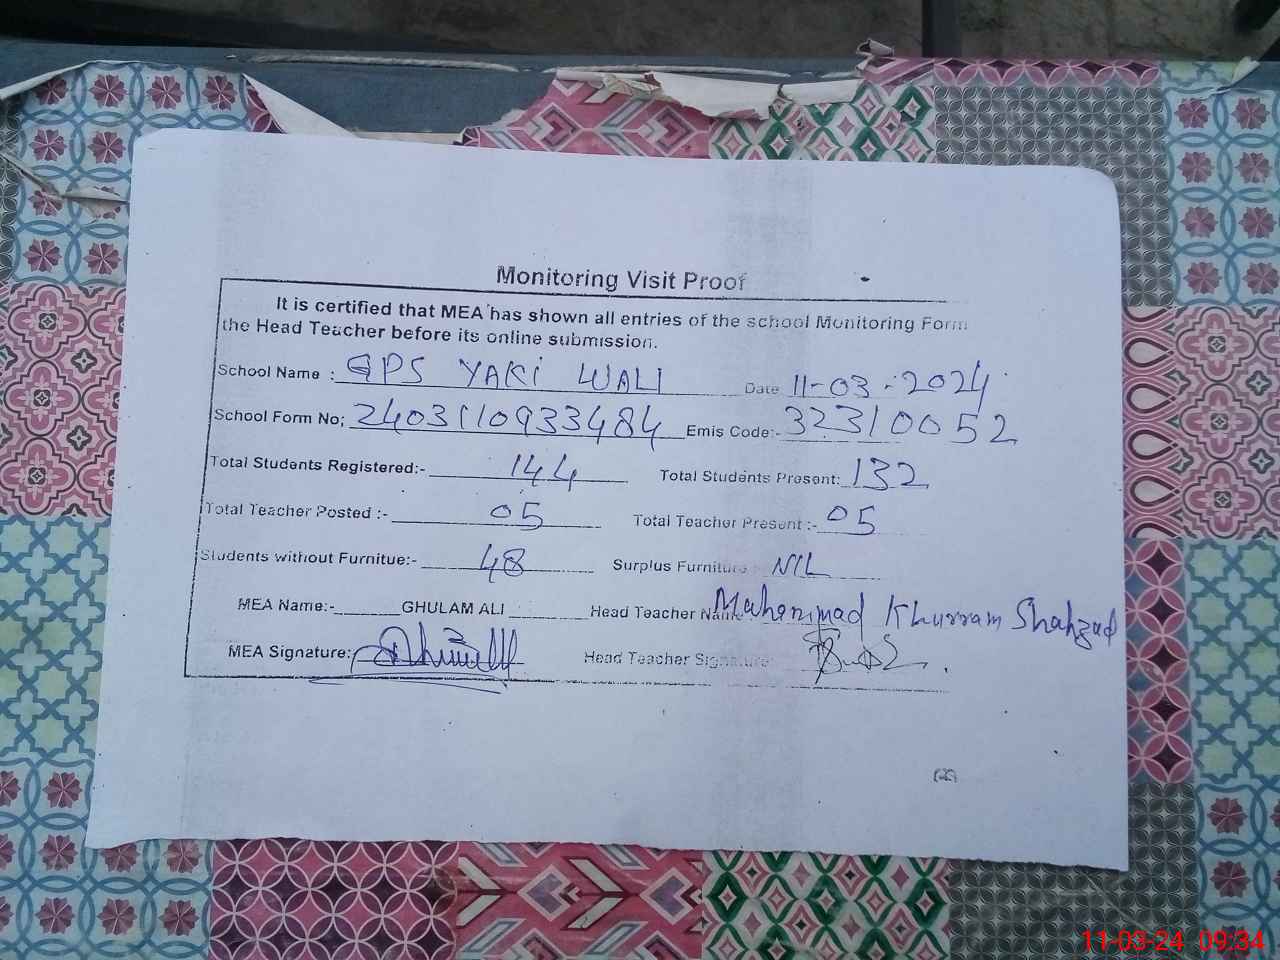 Monitoring Visit Proof
It is certified that MEA has shown all entries of the school Monitoring Form
the Head Teacher before its online submission.
School Name : GPS YAKI WALI Date 11-03-2024
School Form No; 2403110933484 Emis Code:- 32310052
Total Students Registered:- 144 Total Students Present: 132
Total Teacher Posted :- 05 Total Teacher Present :- 05
Students without Furnitue:- 48 Surplus Furniture NIL
MEA Name:- GHULAM ALI Head Teacher Name Muhammad Khurram Shahzad
MEA Signature: Head Teacher Signature:
11-03-24 09:34